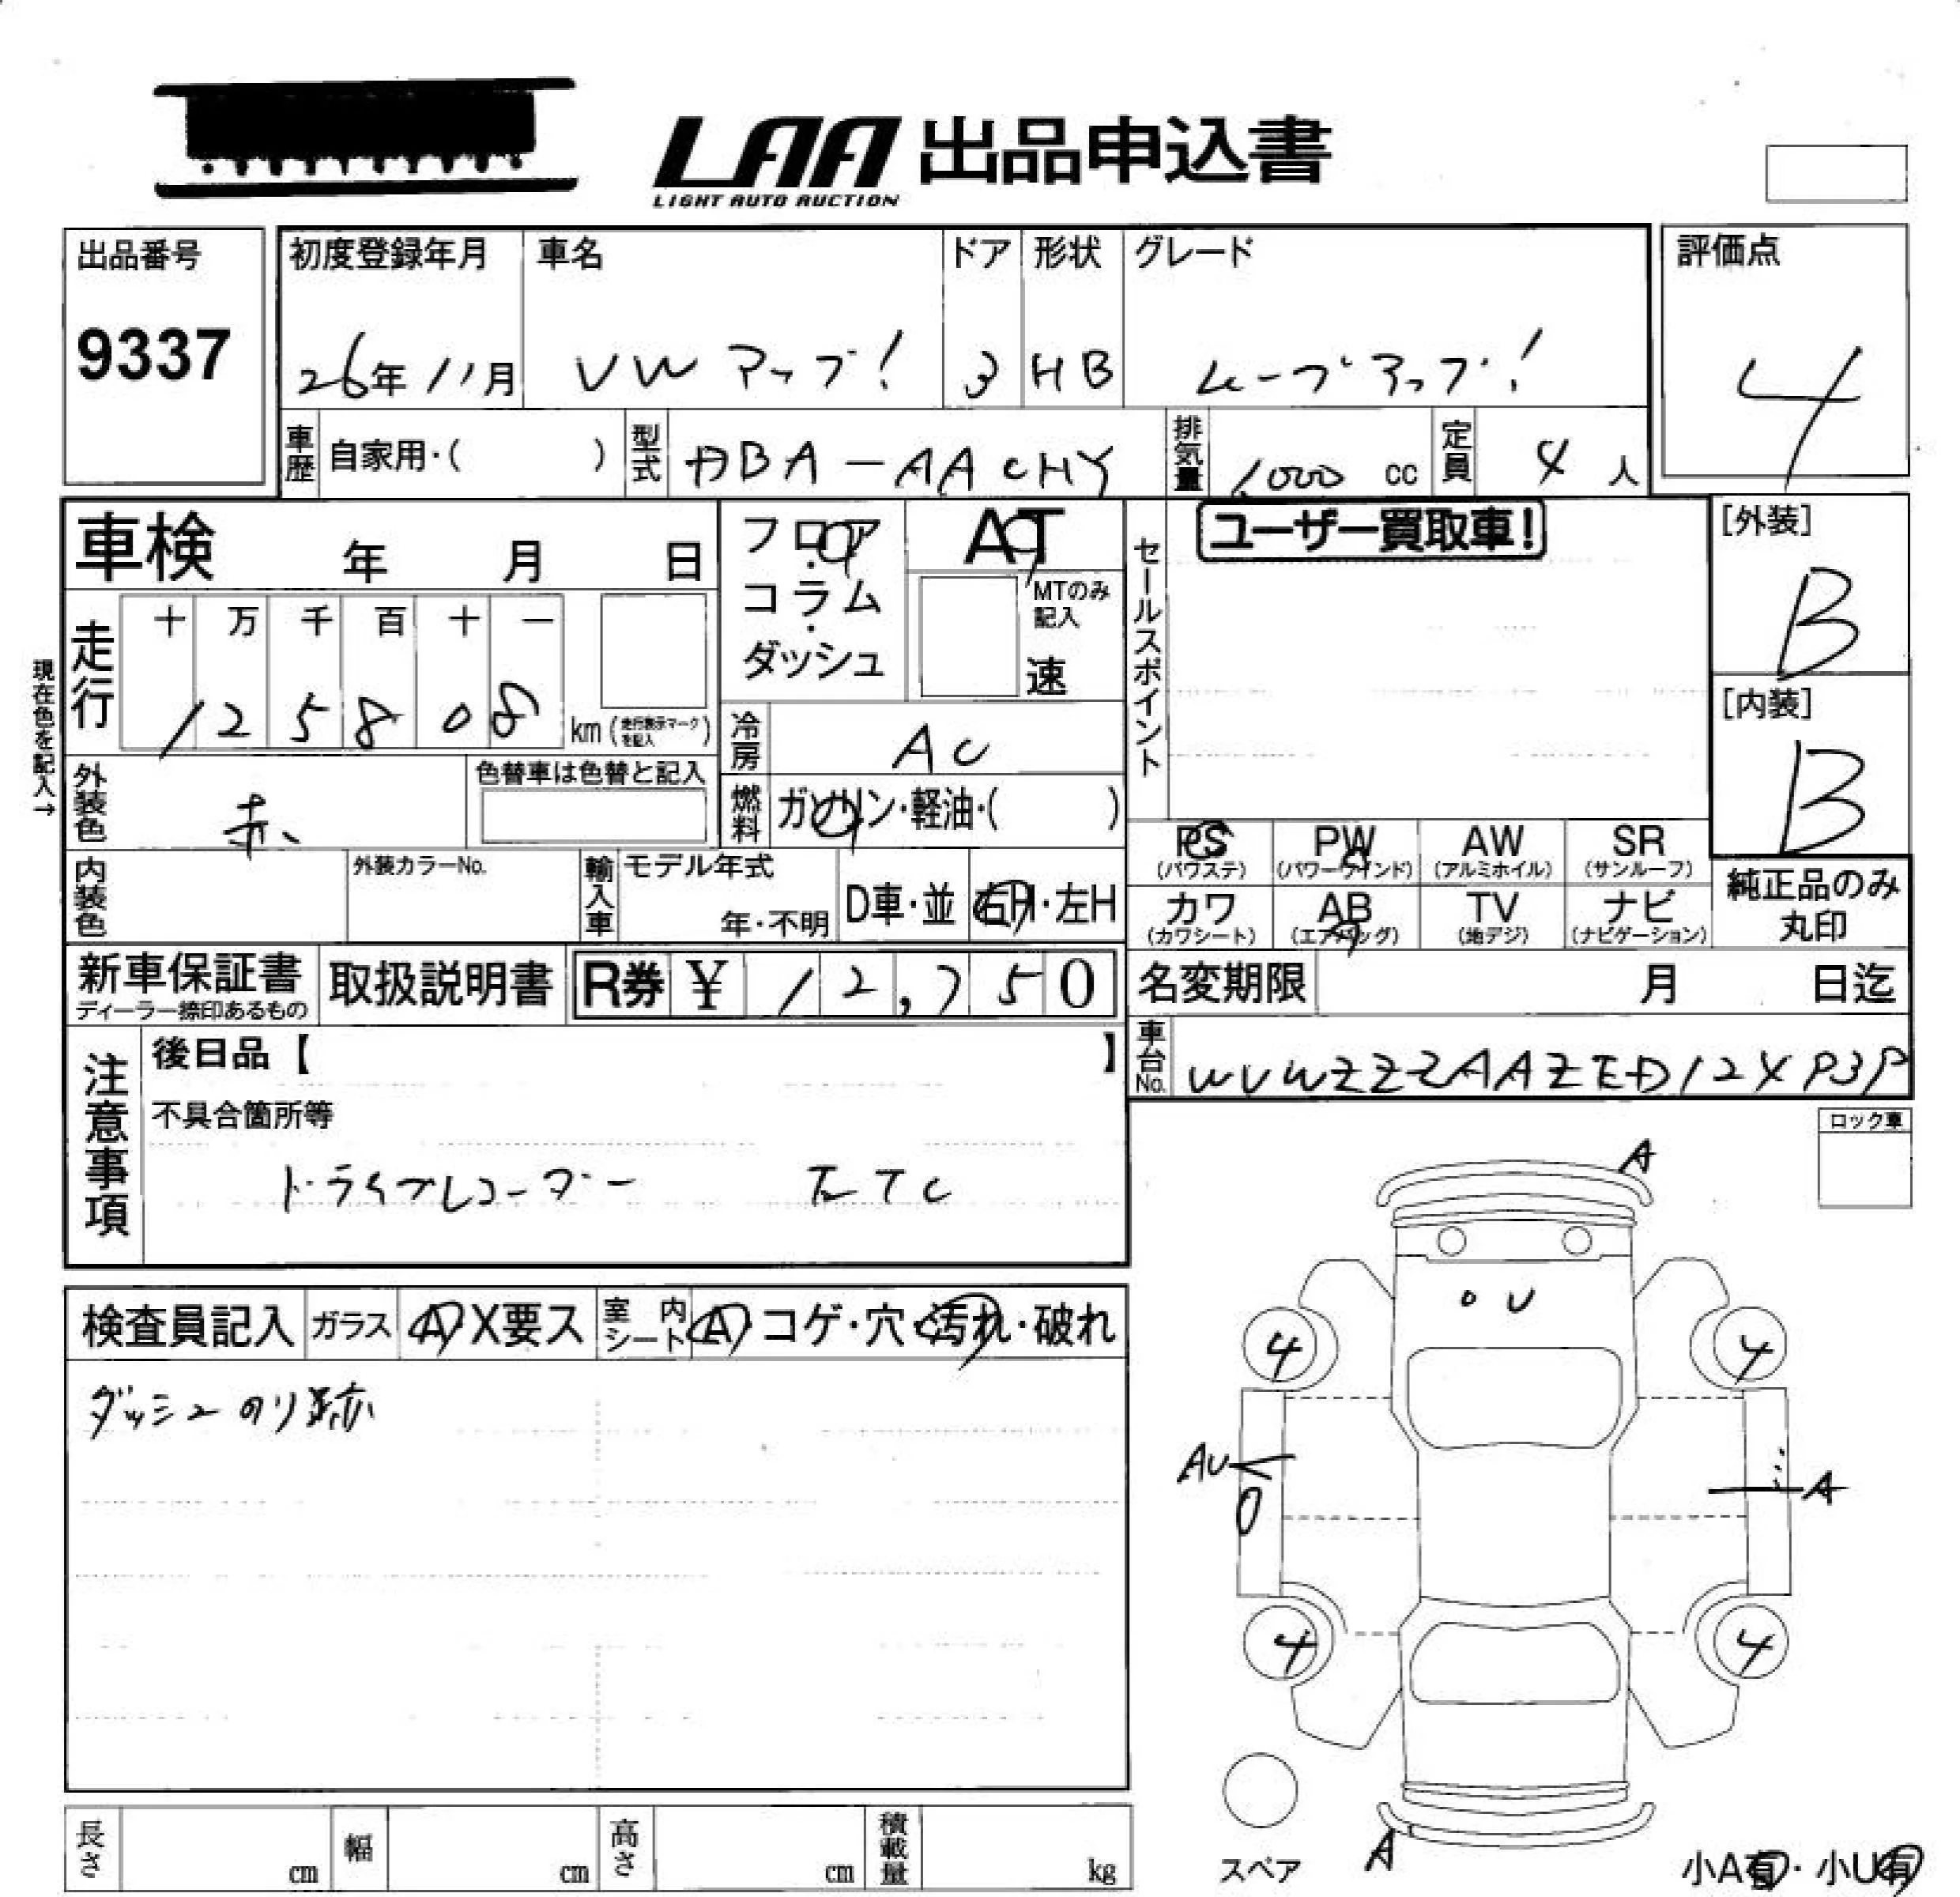 LAA 出品申込書
LIGHT AUTO AUCTION
出品番号
9337
初度登録年月
26年11月
車名
VW アップ!
ドア
3
形状
HB
グレード
ムーブアップ!
評価点
4
車歴 自家用・( )
型式 DBA-AACHY
排気量 1,000 cc
定員 4 人
車検 年 月 日
フロア・コラム・ダッシュ
AT
MTのみ記入
速
セールスポイント
ユーザー買取車!
[外装]
B
[内装]
B
現在色を記入→
走行
十 万 千 百 十 一
1 2 5 8 0 8
km (走行表示マークを記入)
冷房 AC
外装色 赤
色替車は色替と記入
燃料 ガソリン・軽油・( )
PS (パワステ)
PW (パワーウインド)
AW (アルミホイル)
SR (サンルーフ)
内装色
外装カラーNo.
輸入車
モデル年式
年・不明
D車・並
右H・左H
カワ (カワシート)
AB (エアバッグ)
TV (地デジ)
ナビ (ナビゲーション)
純正品のみ丸印
新車保証書
ディーラー捺印あるもの
取扱説明書
R券 ¥ 12,750
名変期限 月 日迄
車台No. WVWZZZAAZED12XP3P
注意事項
後日品【 】
不具合箇所等
ドライブレコーダー ETC
ロック車
検査員記入
ガラス A X要ス
室内シート A・コゲ・穴・汚れ・破れ
ダッシュのり跡
A
U
4 4
AU
A
4 4
A
スペア
小A有・小U有
長さ cm
幅 cm
高さ cm
積載量 kg